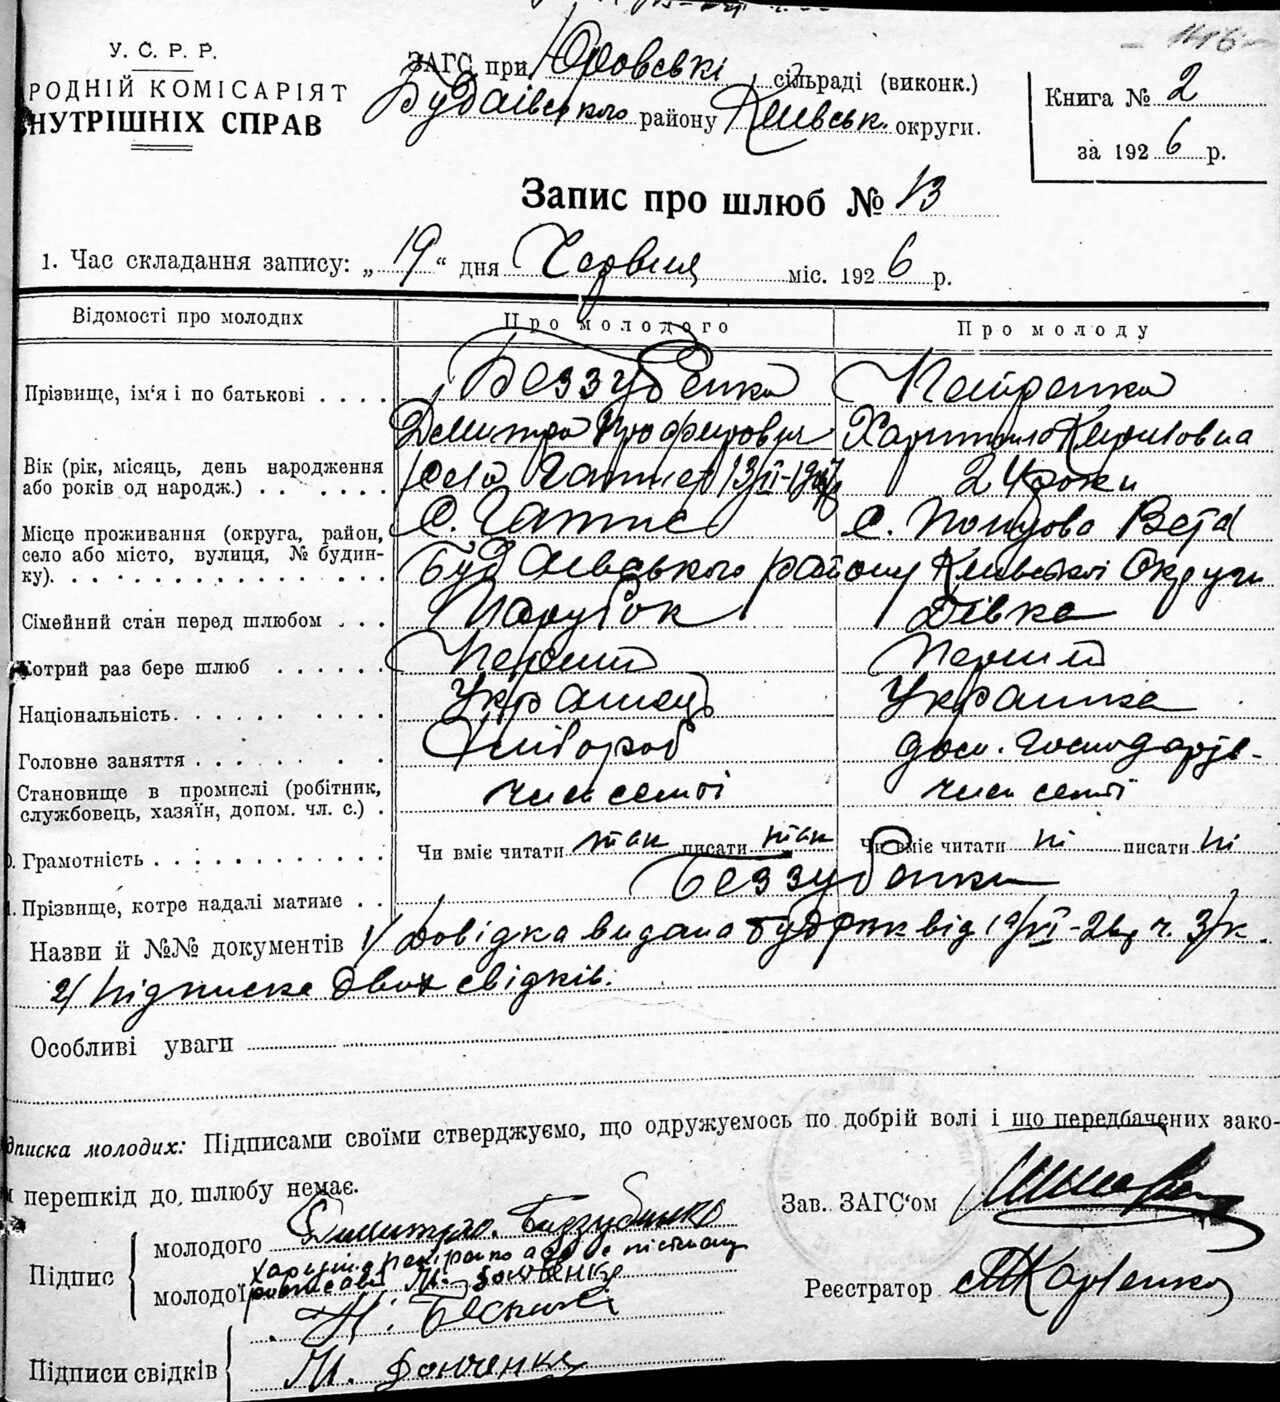 У. С. Р. Р.
РОДНІЙ КОМІСАРІЯТ
НУТРІШНІХ СПРАВ
ЗАГС при Юровські сільраді (виконк.)
Будаївського району Київськ. округи.
Книга № 2
за 1926 р.
Запис про шлюб № 13
1. Час складання запису: „19“ дня Червня міс. 1926 р.
Відомості про молодих
Про молодого
Про молоду
Прізвище, ім‘я і по батькові
Беззубенко
Дмитро
Вік (рік, місяць, день народження
або років од народж.)
село Гатне
24 роки
Місце проживання (округа, район,
село або місто, вулиця, № будин-
ку).
с. Гатне
с. Вета
Будаївського району Київської Округи
Сімейний стан перед шлюбом
Парубок
Дівка
Котрий раз бере шлюб
Перший
Перший
Національність
Українець
Українка
Головне заняття
Хлібороб
дом. господарув-
Становище в промислі (робітник,
службовець, хазяїн, допом. чл. с.)
член семії
член семії
Грамотність
Чи вміє читати так писати так
Чи вміє читати ні писати ні
Прізвище, котре надалі матиме
Беззубенки
Назви й №№ документів 1/ Довідка видана від
2/ Підписка двох свідків.
Особливі уваги
дписка молодих: Підписами своїми стверджуємо, що одружуємось по добрій волі і що передбачених зако-
перешкід до шлюбу немає.
Підпис
молодого Дмитро Беззубенко
молодої
Підписи свідків
М. Бонченко
Зав. ЗАГС‘ом
Реєстратор